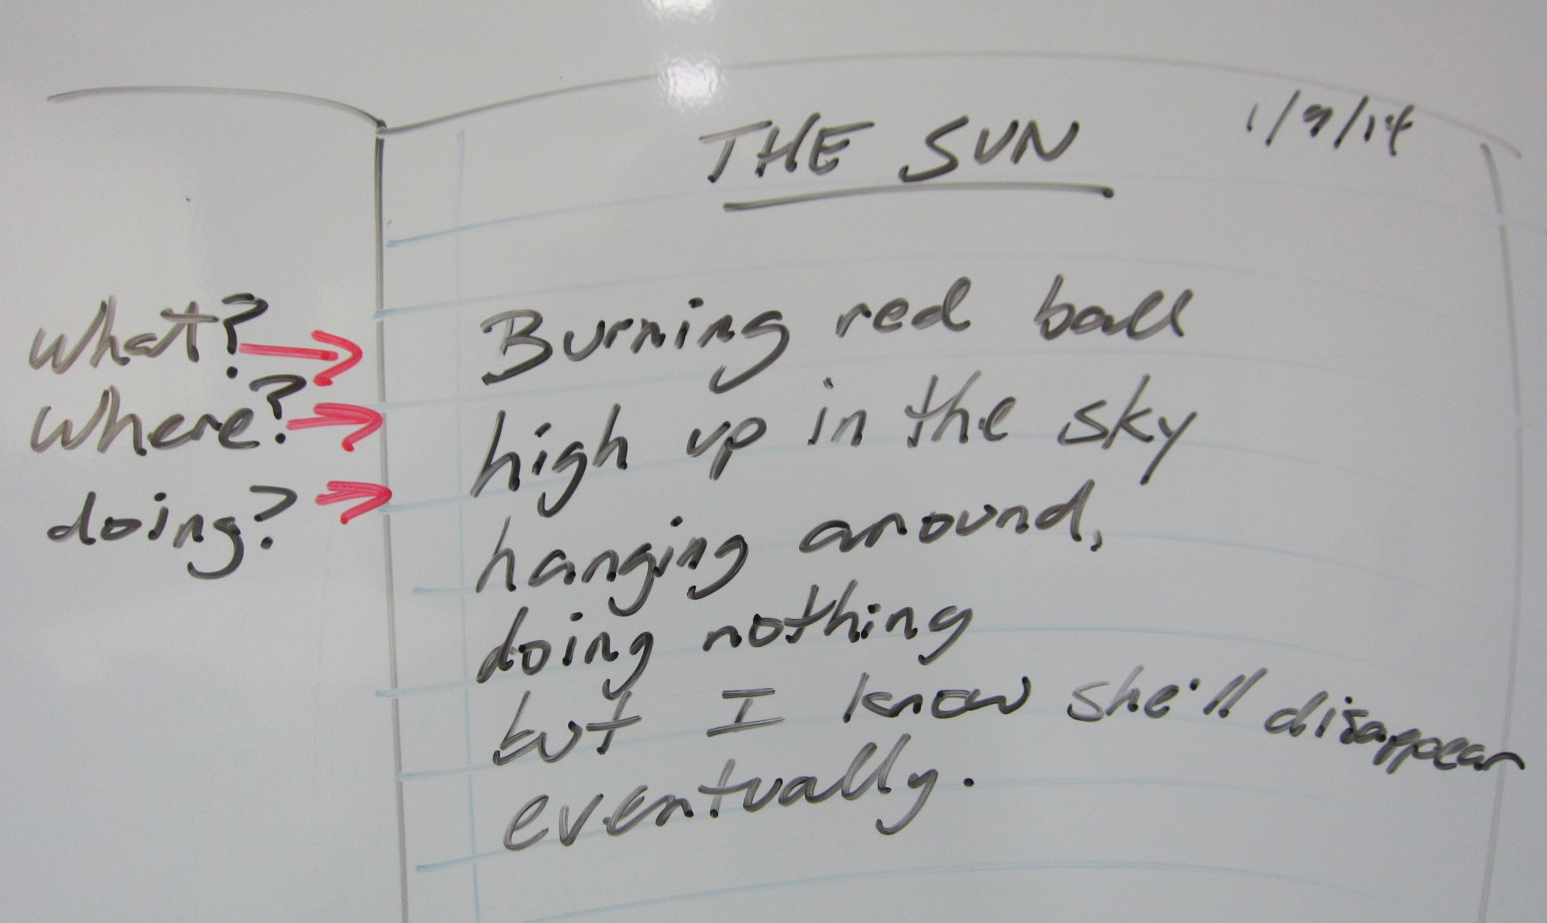 THE SUN 1/9/14
What? Burning red ball
Where? high up in the sky
doing? hanging around,
doing nothing
but I know she'll disappear
eventually.